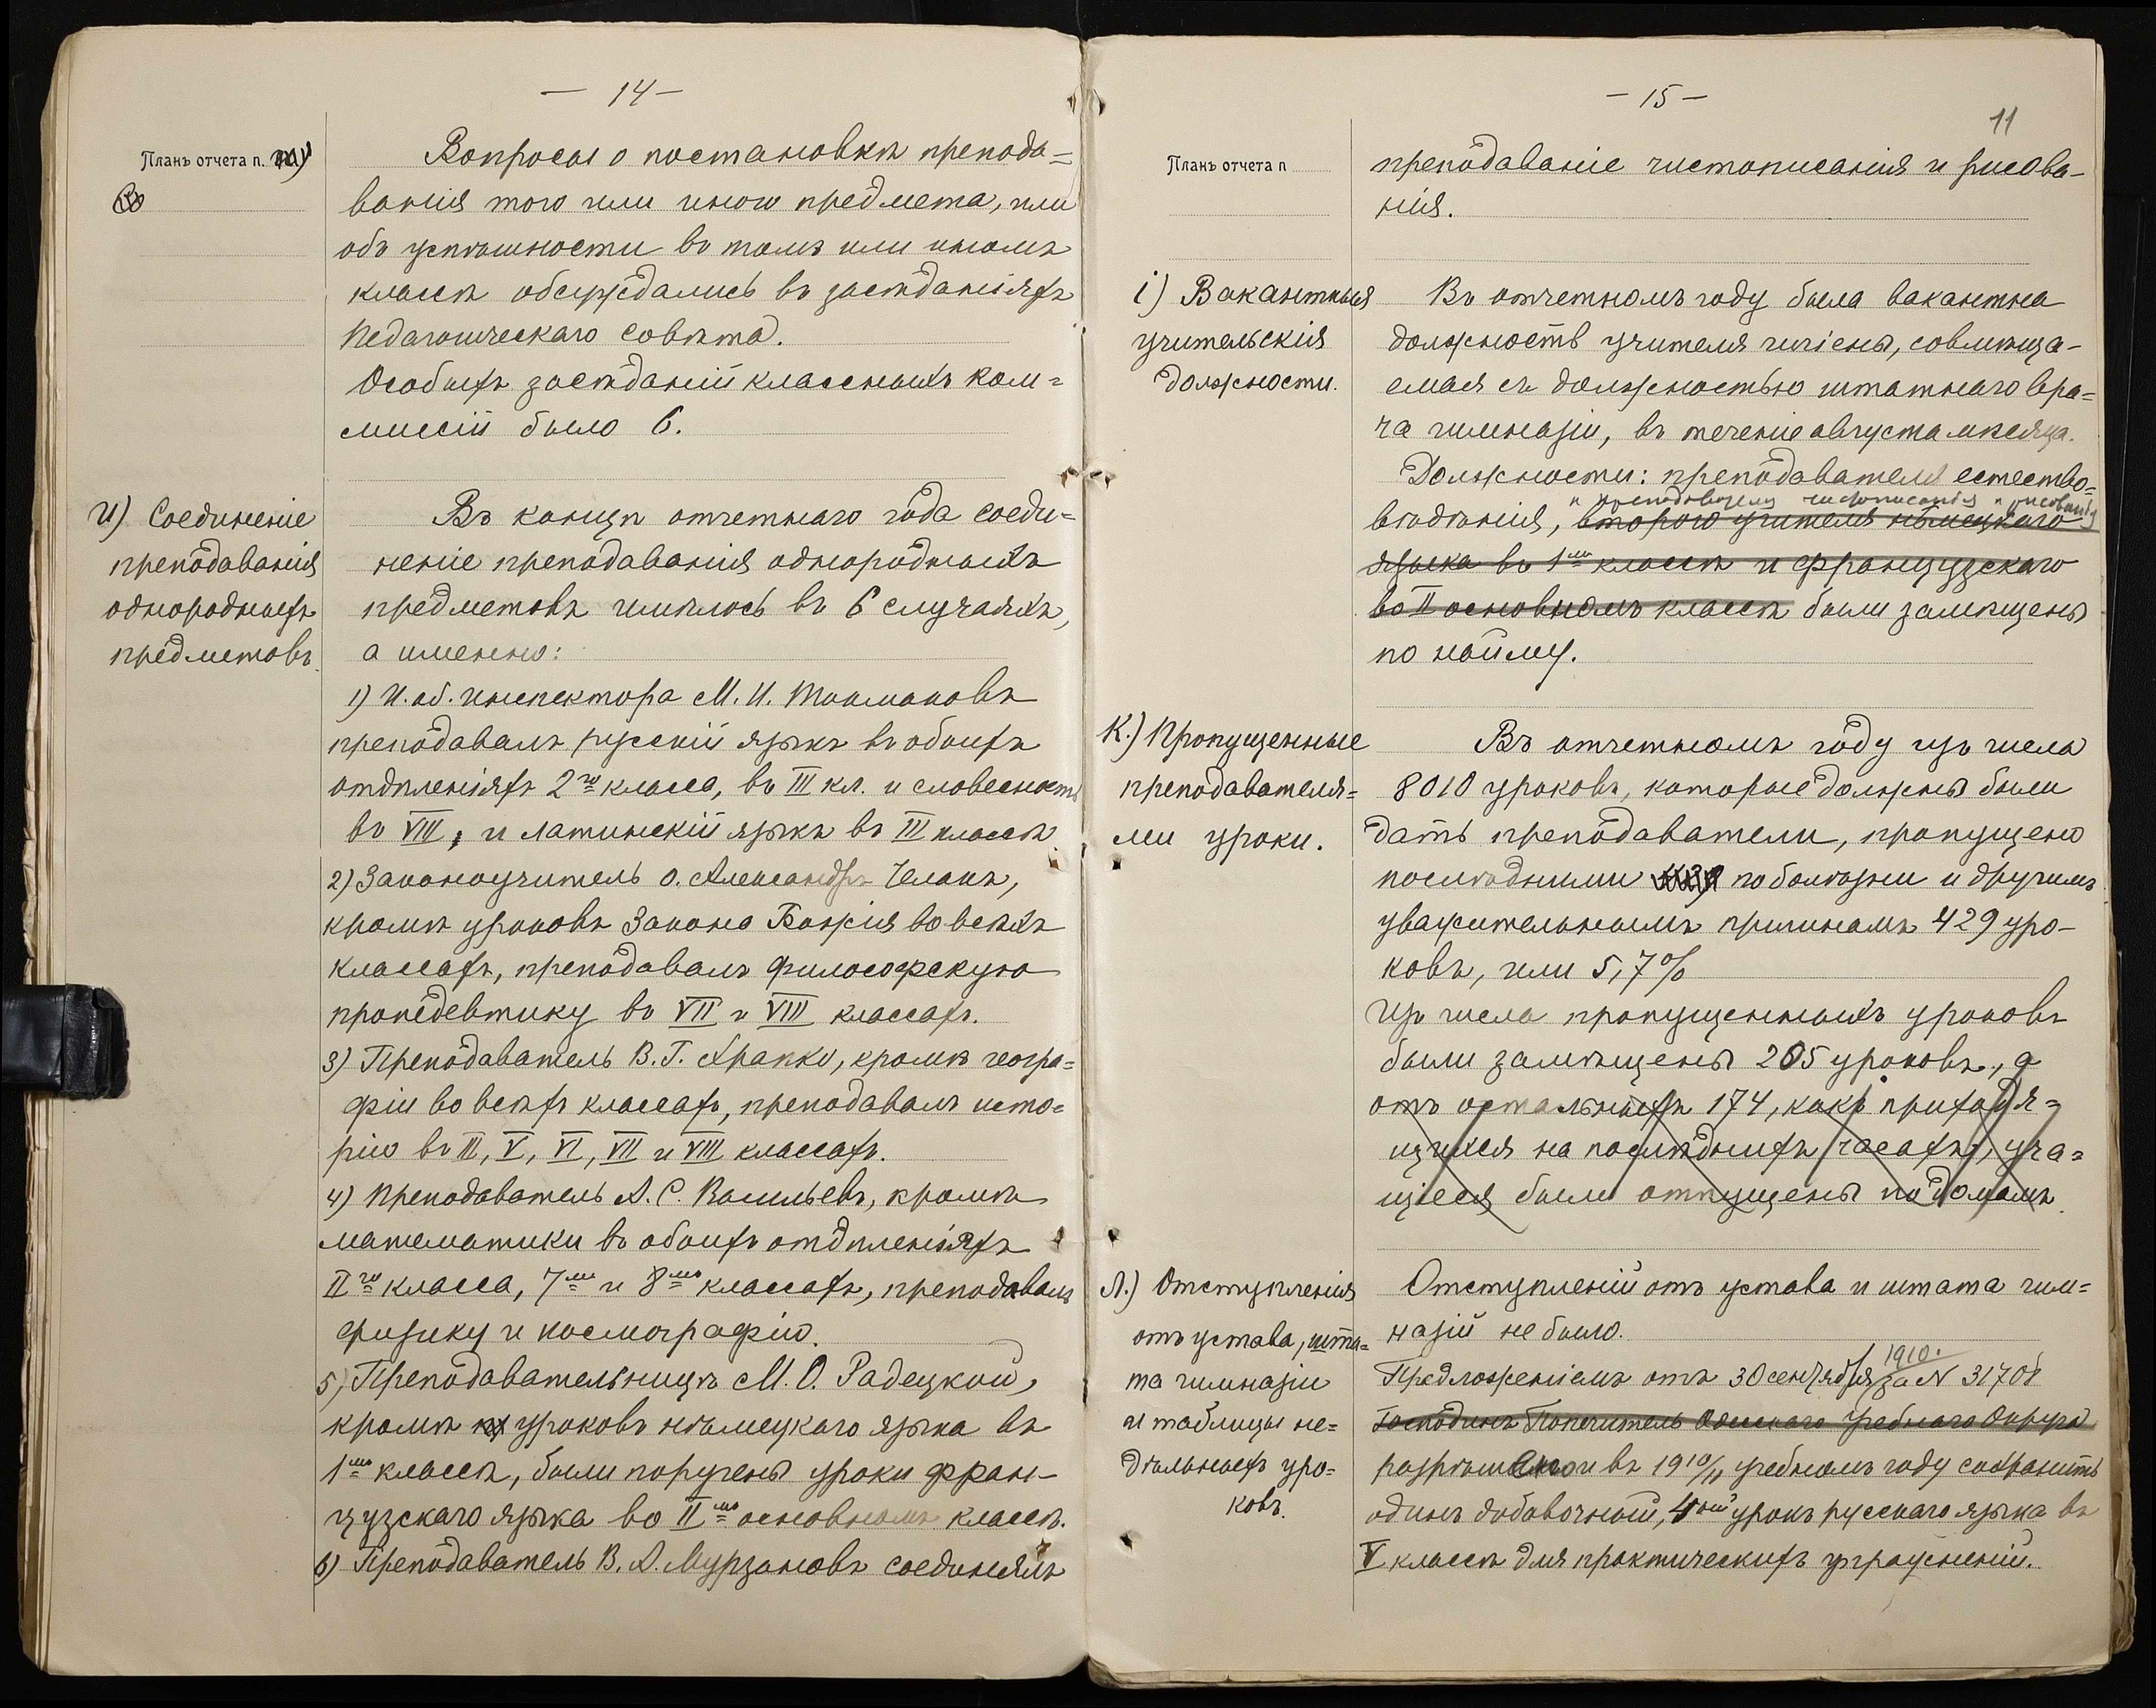 — 14 —
Планъ отчета п.
Вопросы о постановкѣ препода=
ванія того или иного предмета, или
объ успѣшности въ томъ или иномъ
классѣ обсуждались въ засѣданіяхъ
Педагогическаго Совѣта.
Особыхъ засѣданій классныхъ ком=
миссій было 6.
И) Соединеніе
преподаванія
однородныхъ
предметовъ.
Въ концѣ отчетнаго года соеди=
неніе преподаванія однородныхъ
предметовъ имѣлось въ 6 случаяхъ,
а именно:
1) И. об. инспектора М. И.
преподавалъ русскій языкъ въ обоихъ
отдѣленіяхъ 2го класса, въ III кл. и словесность
въ VIII, и латинскій языкъ въ III классѣ.
2) Законоучитель о. Александръ Челакъ,
кромѣ уроковъ Закона Божія во всѣхъ
классахъ, преподавалъ философскую
пропедевтику въ VII и VIII классахъ.
3) Преподаватель В. Г. Храпко, кромѣ геогра=
фіи во всѣхъ классахъ, преподавалъ исто=
рію въ III, V, VI, VII и VIII классахъ.
4) Преподаватель А. С. Васильевъ, кромѣ
математики въ обоихъ отдѣленіяхъ
IIго класса, 7мъ и 8мъ классахъ, преподавалъ
физику и космографію.
5) Преподавательницѣ М. О. Радецкой,
кромѣ уроковъ нѣмецкаго языка въ
1мъ классѣ, были поручены уроки фран-
цузскаго языка во IIмъ основномъ классѣ.
6) Преподаватель В. А. Мурзановъ соединялъ
— 15 —
11
Планъ отчета п
преподаваніе чистописанія и рисова-
нія.
i) Вакантныя
учительскія
должности.
Въ отчетномъ году была вакантна
должность учителя гигіены, совмѣща-
емая съ должностью штатнаго вра=
ча гимназіи, въ теченіе августа мѣсяца.
Должности: преподавателя естество=
и преподавателя чистописанія и рисованія
вѣдѣнія, второго учителя нѣмецкаго
языка въ 1мъ классѣ и французскаго
во II основномъ классѣ были замѣщены
по найму.
К.) Пропущенные
преподавателя=
ми уроки.
Въ отчетномъ году изъ числа
8010 уроковъ, которые должны были
дать преподаватели, пропущено
послѣдними по болѣзни и другимъ
уважительнымъ причинамъ 429 уро-
ковъ, или 5,7%
Изъ числа пропущенныхъ уроковъ
были замѣщены 205 уроковъ, а
отъ остальныхъ 174, какъ приходя=
щихся на послѣднихъ часахъ, уча=
щіеся были отпущены по домамъ.
Л.) Отступленія
отъ устава, шта=
та гимназіи
и таблицы не=
дѣльныхъ уро=
ковъ.
Отступленій отъ устава и штата гим=
назій не было.
1910.
Предложеніемъ отъ 30 сентября за N 31708
Господинъ Попечитель Одесскаго Учебнаго Округа
разрѣшено и въ 1910/11 учебномъ году сохранить
одинъ добавочный, 4ый урокъ русскаго языка въ
V классѣ для практическихъ упражненій.